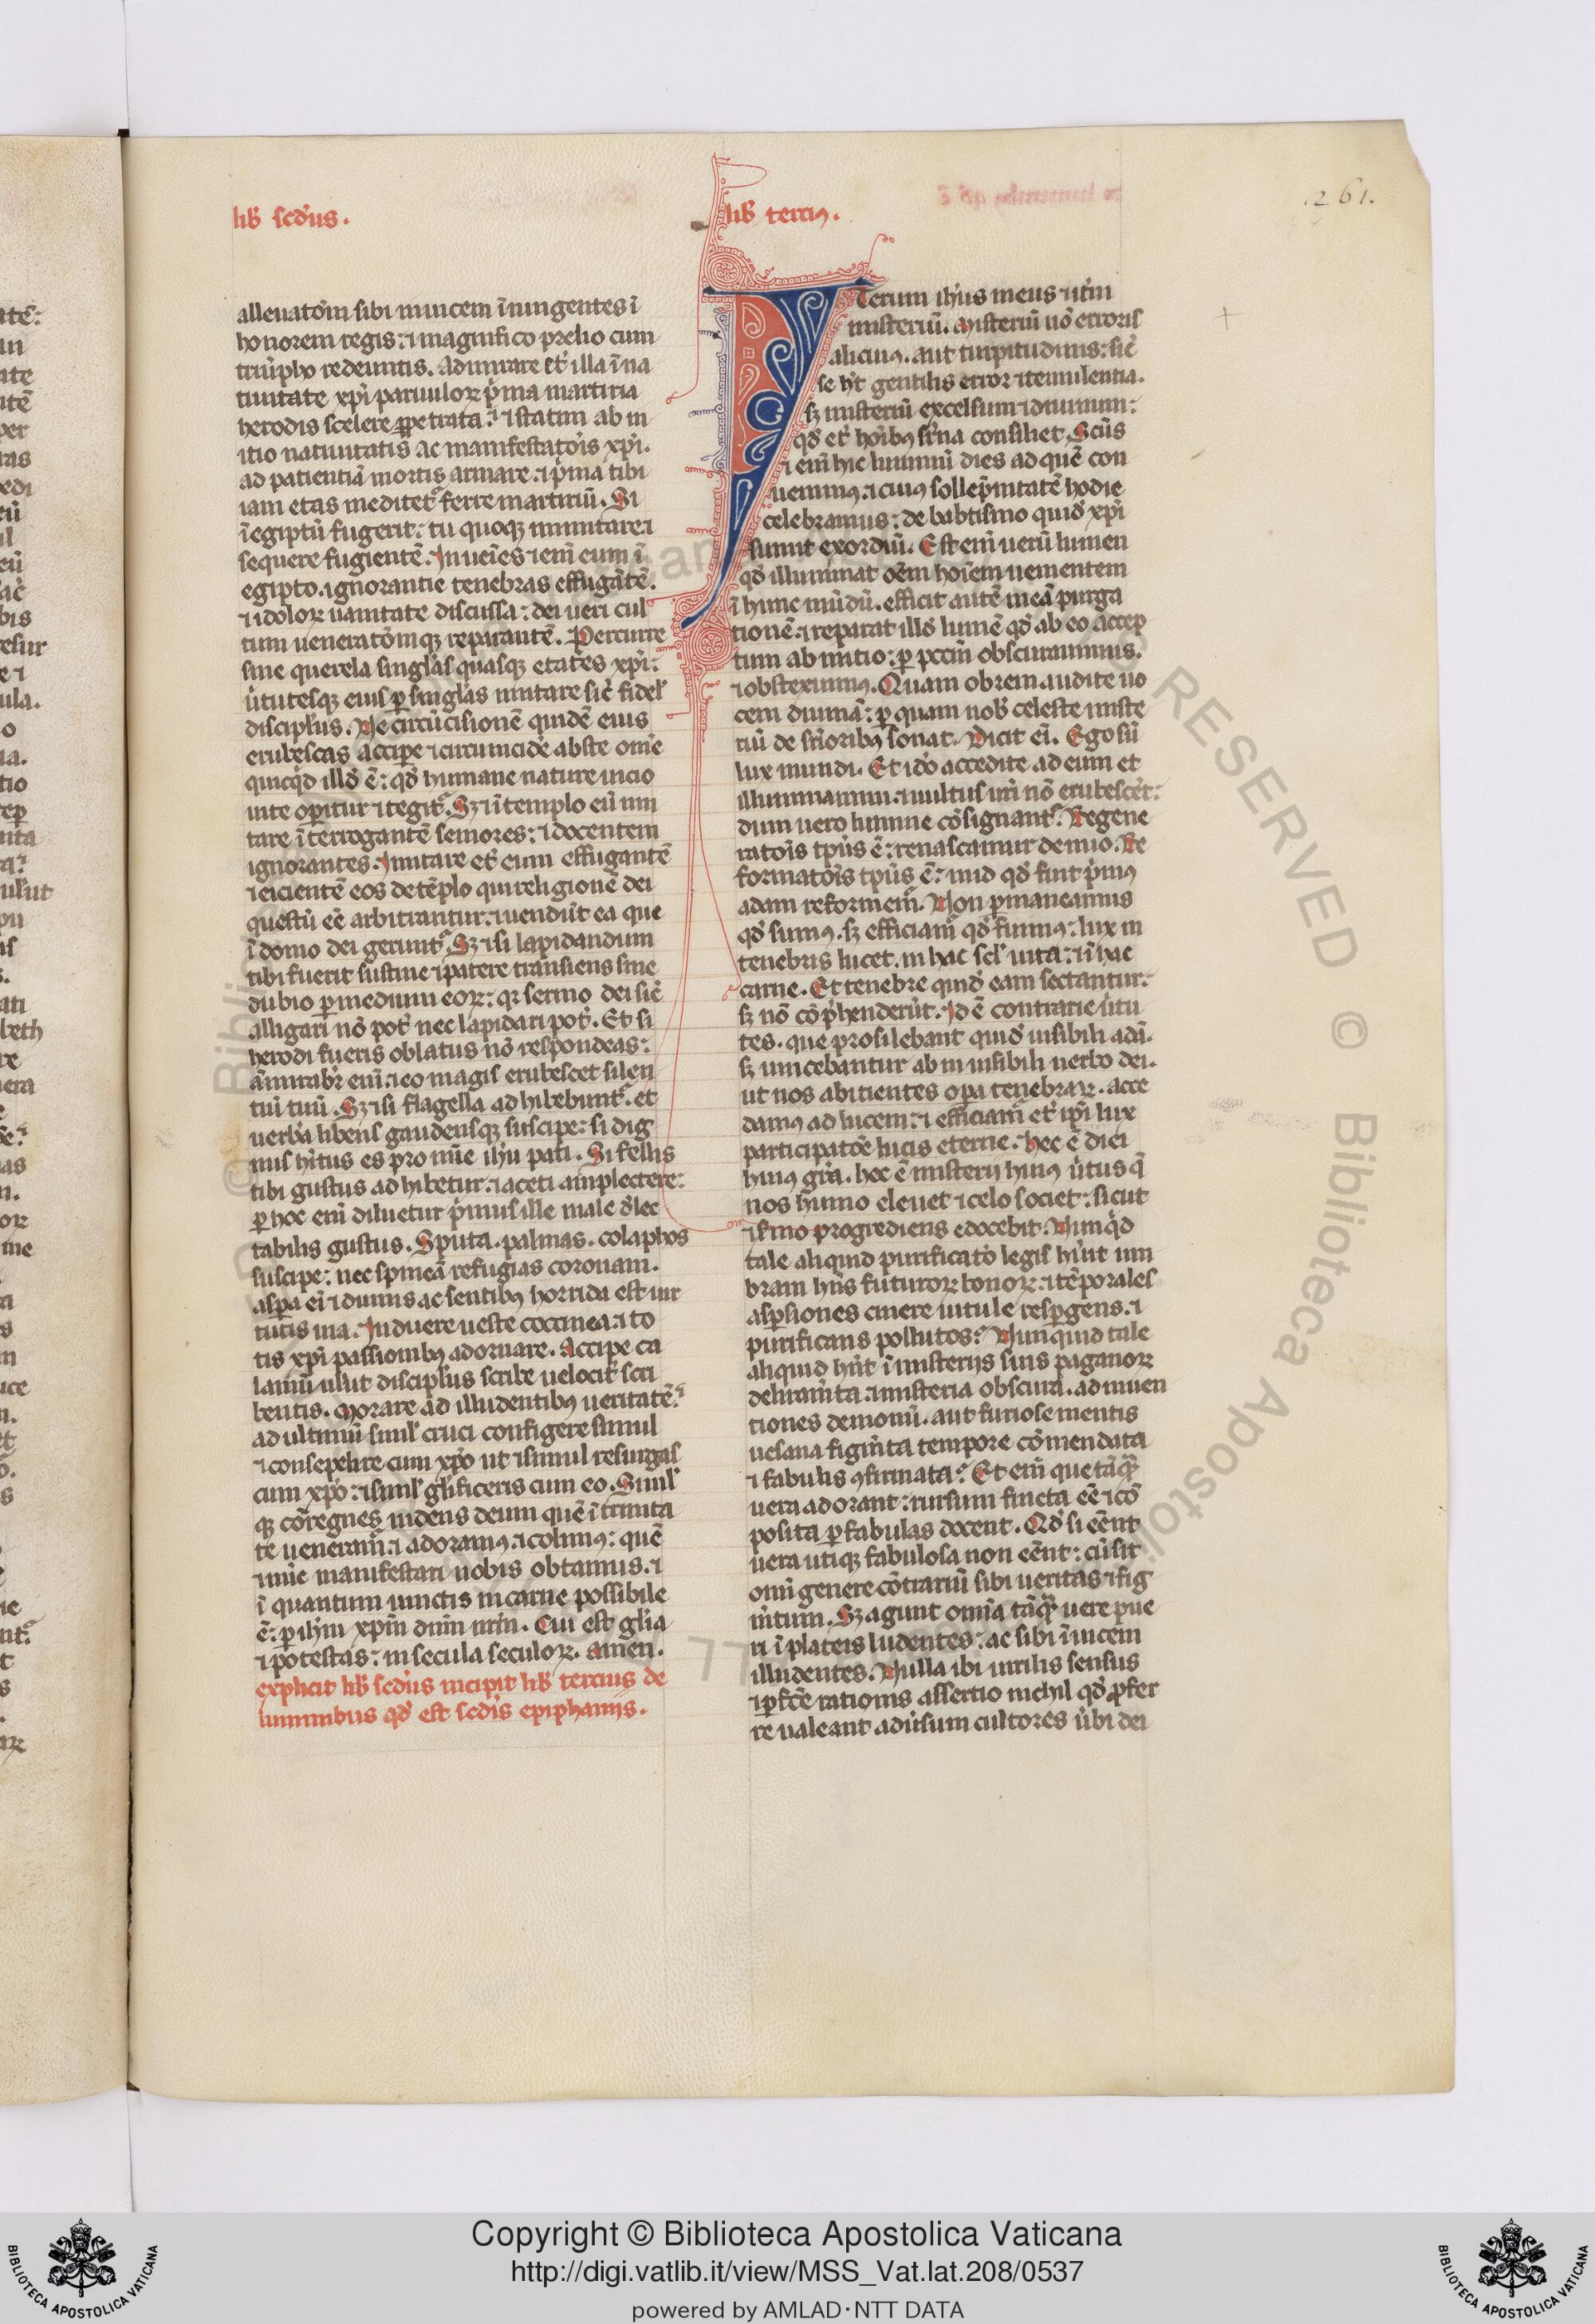 lib̄ scđus.
lib̄ tercius.
261.
alleuatōm sibi inuicem īniungentes ī
honorem regis: ⁊ magnifico prelio cum
triūpho redeuntis. Admirare et illa ī na
tiuitate xp̄i paruuloꝝ p̍ma martiria
herodis scelere ꝑpetrata: ⁊ statim ab in
itio natiuitatis ac manifestatōis xp̄i.
ad patientiā mortis armare. ⁊ p̍ma tibi
iam etas meditet᷑ ferre martiriū. Si
ī egiptū fugerit: tu quoqꝫ imitare ⁊
sequere fugientē. Inueīes ⁊ enī eum ī
egipto. ignorantie tenebras effugātē.
⁊ idoloꝝ uanitate discussa: dei ueri cul
tum ueneratōmqꝫ reparantē. Percurre
sine querela singlas quasqꝫ etates xp̄i:
ûtutesqꝫ eius ꝑ singlas imitare sic̄ fidel̓
disciplus. Ne circūcisionē quidē eius
erubescas accipe ⁊ circumcide abste om̄e
quicqd illđ ē: qđ humane nature incio
uite opitur ⁊ tegit᷑. Sꝫ ⁊ ī templo eū imi
tare īterrogantē seniores: ⁊ docentem
ignorantes. Imitare et eum effugantē
⁊ eicientē eos de tēplo qui religionē dei
questū eē arbitrantur: ⁊ uendūt ea que
ī domo dei gerunt᷑. Sꝫ ⁊ si lapidandum
tibi fuerit sustine ⁊ patere transiens sine
dubio ꝑ medium eoꝝ: qꝛ sermo dei sic̄
alligari nō pot̄ nec lapidari pot̄. Et si
herodi fueris oblatus nō respondeas:
āmirabr̄ enī. ⁊ eo magis erubescet silen
tiū tuū. Sꝫ ⁊ si flagella adhibebunt᷑. et
uerb̄a libens gaudensqꝫ suscipe: si dig
nus hītus es pro nīe ih̄u pati. Si fellis
tibi gustus adhibetur: ⁊ aceti amplectere:
ꝑ hoc enī diluetur p̍mus ille male đlec
tabilis gustus. Sputa. palmas. colaphos
suscipe: nec spineā refugias coronam.
aspa eī ⁊ dumis ac sentibꝫ horrida est uir
tutis uia. Induere ueste coccinea: ⁊ to
tis xp̄i passionibꝫ adornare. Accipe ca
lamū ulut disciplus scribe uelocit̓ scri
bentis. Morare ad illudentibꝫ ueritatē:
ad ultimū simul̓ cruci configere simul
⁊ consepelire cum xp̄o ut ⁊ simul resurgas
cum xp̄o: ⁊ simul̓ gl̓ificeris cum eo. Simul̓
qꝫ cōregnes uidens deum quē ī trinita
te ueneram᷑. ⁊ adoramꝰ. ⁊ colimꝰ: quē
⁊ nūc manifestari uobis obtamus. ⁊
ī quantum iunctis in carne possibile
ē: ꝑ ih̄m xp̄m dnm nrm. Cui est gl̄ia
⁊ potestas: in secula seculoꝝ. amen.
explicit lib̄ scđus incipit lib̄ tercius de
luminibus qđ est scđis epiphaniis.
Iterum ih̄us meus ⁊ it̄m
misteriū. Misteriū nō erroris
alicuiꝰ. aut turpitudinis: sic̄
se h̄t gentilis error ⁊ temulentia.
sꝫ misteriū excelsum ⁊ diuinum:
qđ et hoībꝫ sr̄na consiliet. Scūs
⁊ enī hic luminū dies ad quē con
uenimꝰ: ⁊ cuiꝰ sollēpnitatē hodie
celebramus: de babtismo quiđ xp̄i
sumit exordiū. Est enī uerū lumen
qđ illuminat oēm hoīem uenientem
ī hunc mūdū. efficit autē meā purga
tionē: ⁊ reparat illđ lumē qđ ab eo accep
tum ab initio: ꝑ pccm̄ obscurauimus.
⁊ obteximus. Quam obrem audite uo
cem diuinā: ꝑ quam nob̓ celeste miste
riū de sūioribꝫ sonat. Dicit eī. Ego sū
lux mundi. Et idō accedite ad eum et
illuminamini: ⁊ uultus urī nō erubescēt:
dum uero lumine cōsignant᷑. Regene
ratōis tp̄us ē: renascamur denuo. Re
formatōis tp̄us ē: imđ qđ fiīt p̍mꝰ
adam reformem᷑. Non pmaneamus
qđ sumꝰ. sꝫ efficiam᷑ qđ fuimꝰ: lux in
tenebris lucet. in hac scl̓ uita: ⁊ ī hac
carne. Et tenebre quiđ eam sectantur:
sꝫ nō cōp̍henderūt. Id ē contrarie ûtu
tes. que prosilebant quiđ uisibili adā.
sꝫ uincebantur ab inuisibili uerbo dei.
ut nos abicientes opa tenebraꝝ. acce
damus ad lucem: ⁊ efficiam᷑ et ipī lux
participatōe lucis eterne. Hec ē diei
huiꝰ grā. hec ē misterij huiꝰ ûtus q̄
nos humo eleuet ⁊ celo societ: sicut
⁊ sermo progrediens edocebit. Nunqd
tale aliquid purificatō legis hūit um
bram hn̄s futuroꝝ bonoꝝ: ⁊ tēporales
aspsiones cinere uitule respgens. ⁊
purificans pollutos: Nunquid tale
aliquid hn̄t ī misterijs suis paganoꝝ
deliram̄ta: ⁊ misteria obscura. ad inuen
tiones demonū. aut furiose mentis
uesana figm̄ta tempore cōmendata
⁊ fabulis ꝯfirmata: Et enī que tāq̄ꝫ
uera adorant: rursum fincta eē ⁊ cō
posita ꝑ fabulas docent. Qđ si eēnt
uera utiqꝫ fabulosa non eēnt: cū sit
omī genere cōtrariū sibi ueritas ⁊ fig
m̄tum. Sꝫ agunt omīa tāq̄ꝫ uere pue
ri ī plateis ludentes: ac sibi īuicem
illudentes. Nulla ibi uirilis sensus
⁊ pfcē rationis assertio nichil qđ ꝓfer
re ualeant aduīsum cultores ûbi dei
Copyright © Biblioteca Apostolica Vaticana
http://digi.vatlib.it/view/MSS_Vat.lat.208/0537
powered by AMLAD·NTT DATA
BIBLIOTECA APOSTOLICA VATICANA
BIBLIOTECA APOSTOLICA VATICANA